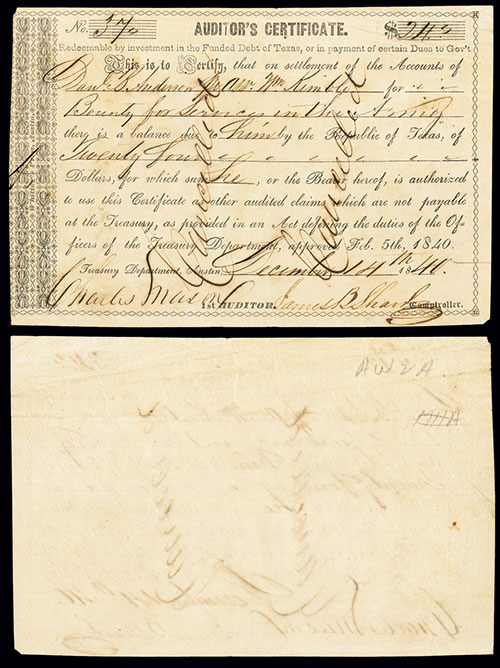 No. AUDITOR'S CERTIFICATE. $
Redeemable by investment in the Funded Debt of Texas, or in payment of certain Dues to Gov't
This is to Certify, that on settlement of the Accounts of
for
Bounty for Services in the Army
there is a balance due to him by the Republic of Texas, of
Twenty four
Dollars, for which sum he, or the Bearer hereof, is authorized
to use this Certificate another audited claims which are not payable
at the Treasury, as provided in an Act defining the duties of the Of-
ficers of the Treasury Department, approved Feb. 5th, 1840.
Treasury Department, Austin, December 14th 1840.
Charles Mason 1st AUDITOR. James B Shaw Comptroller.
Cancelled
Cancelled
AW2A